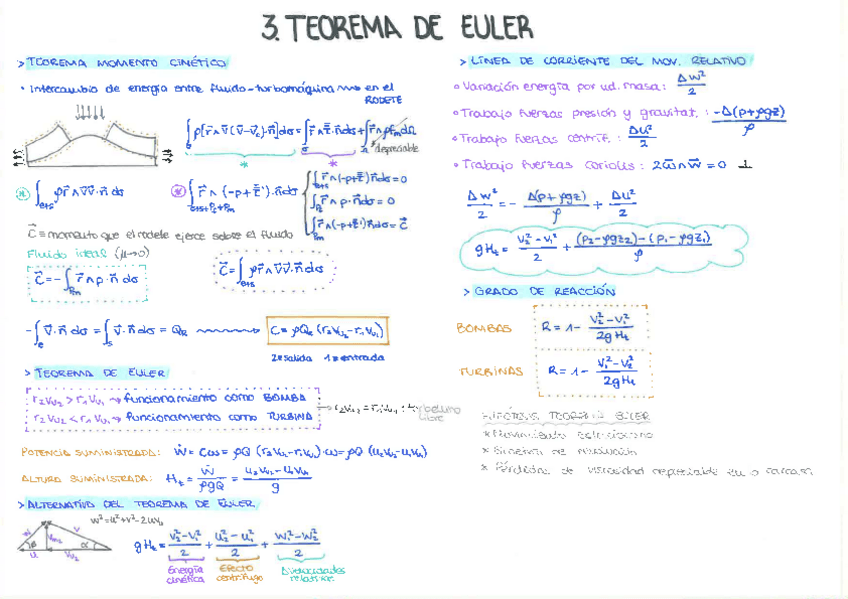 3. TEOREMA DE EULER
> TEOREMA MOMENTO CINÉTICO
• Intercambio de energía entre fluido-turbomáquina → en el RODETE
∫σ ρ[r̄∧v̄(v̄-v̄c)·n̄]dσ = ∫σ r̄∧τ̄·n̄dσ + ∫Ω r̄∧ρf̄m dΩ
* * depreciable
(*) ∫e+s ρr̄∧v̄v̄·n̄ dσ
(*) ∫e+s+Pf+Pm r̄∧(-p+τ̄')·n̄dσ
∫e+s r̄∧(-p+τ̄)n̄dσ = 0
∫Pf r̄∧p·n̄dσ = 0
∫Pm r̄∧(-p+τ̄')n̄dσ = C̄
C̄ ≡ momento que el rodete ejerce sobre el fluido
Fluido ideal (μ→0)
C̄ = -∫Pm r̄∧p·n̄ dσ
C̄ = ∫e+s ρr̄∧v̄v̄·n̄dσ
-∫e v̄·n̄dσ = ∫s v̄·n̄dσ = QR → C = ρQR (r2Vu2 - r1Vu1)
2≡salida 1≡entrada
> TEOREMA DE EULER
r2Vu2 > r1Vu1 → funcionamiento como BOMBA
r2Vu2 < r1Vu1 → funcionamiento como TURBINA
→ r2Vu2 = r1Vu1 : torbellino libre
POTENCIA SUMINISTRADA: Ẇ = Cω = ρQ (r2Vu2 - r1Vu1) ω = ρQ (u2Vu2 - u1Vu1)
ALTURA SUMINISTRADA: Ht = Ẇ/ρgQ = (u2Vu2 - u1Vu1)/g
> ALTERNATIVO DEL TEOREMA DE EULER
w² = u² + v² - 2uVu
w v Vm2 β α u Vu2
gHt = (V2² - V1²)/2 + (u2² - u1²)/2 + (W1² - W2²)/2
Energía cinética
Efecto centrífugo
relativas
> LÍNEA DE CORRIENTE DEL MOV. RELATIVO
• Variación energía por ud. masa: Δw²/2
• Trabajo fuerzas presión y gravitat.: -Δ(p+ρgz)/ρ
• Trabajo fuerzas centríf.: Δu²/2
• Trabajo fuerzas coriolis: 2ω̄∧w̄ = 0 ⊥
Δw²/2 = - Δ(p+ρgz)/ρ + Δu²/2
gHt = (V2² - V1²)/2 + ((p2-ρgz2) - (p1-ρgz1))/ρ
> GRADO DE REACCIÓN
BOMBAS R = 1 - (V2² - V1²)/2gHt
TURBINAS R = 1 - (V1² - V2²)/2gHt
HIPÓTESIS TEOREMA EULER
* Movimiento estacionario
* Simetría de revolución
* Pérdidas de viscosidad despreciable en carcasa